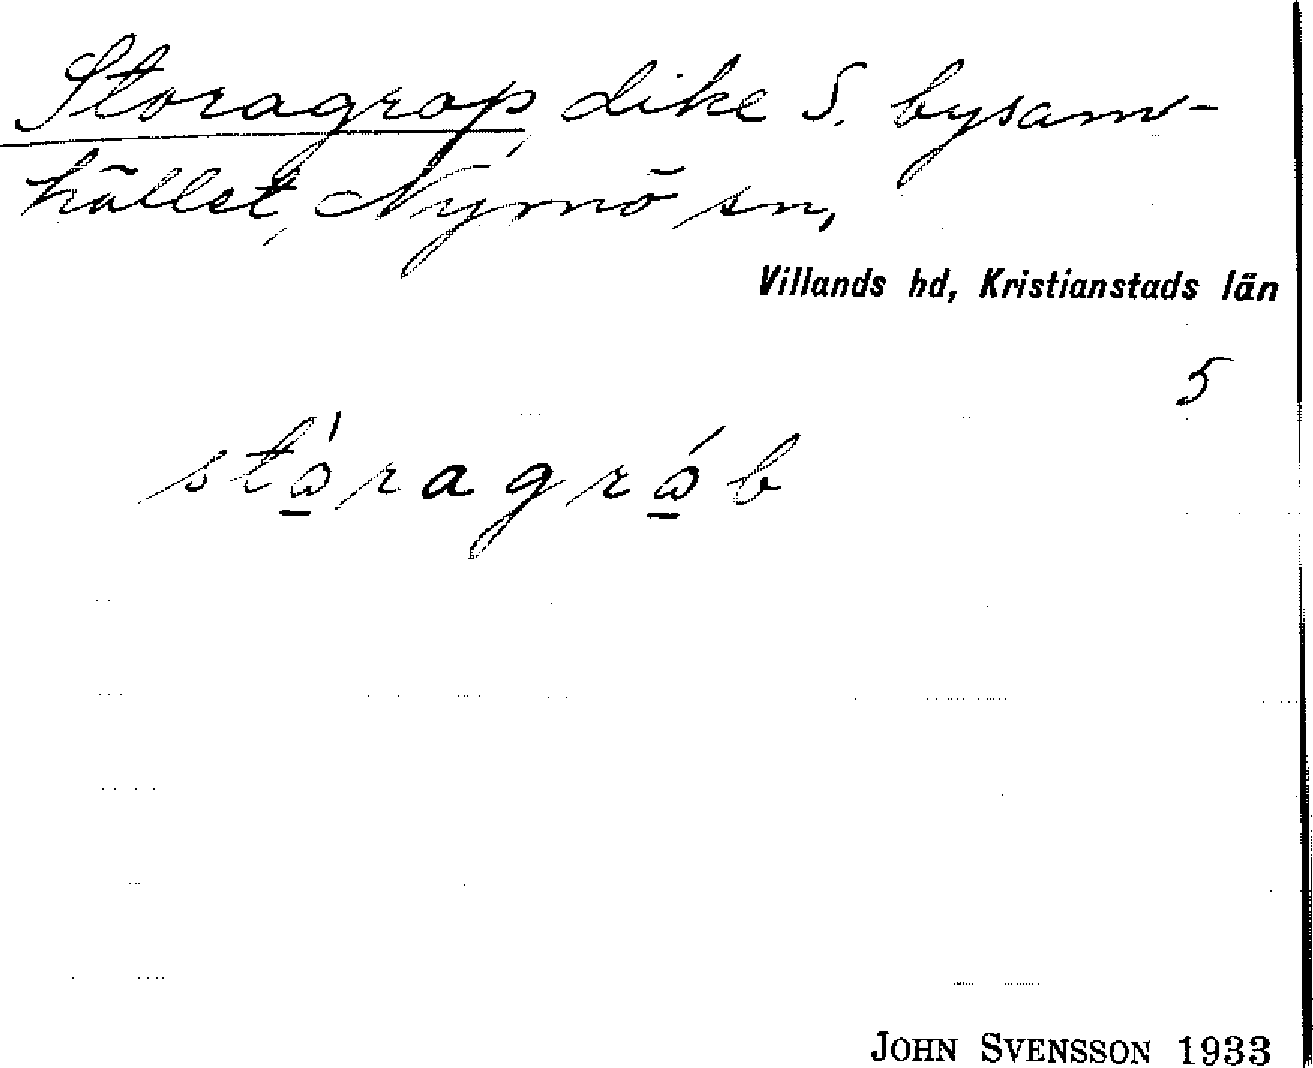 Storagrop, dike S. bysam-
hället, Nymö sn,
Villands hd, Kristianstads län
5
stǻ̱ragrǻ̱b
JOHN SVENSSON 1933